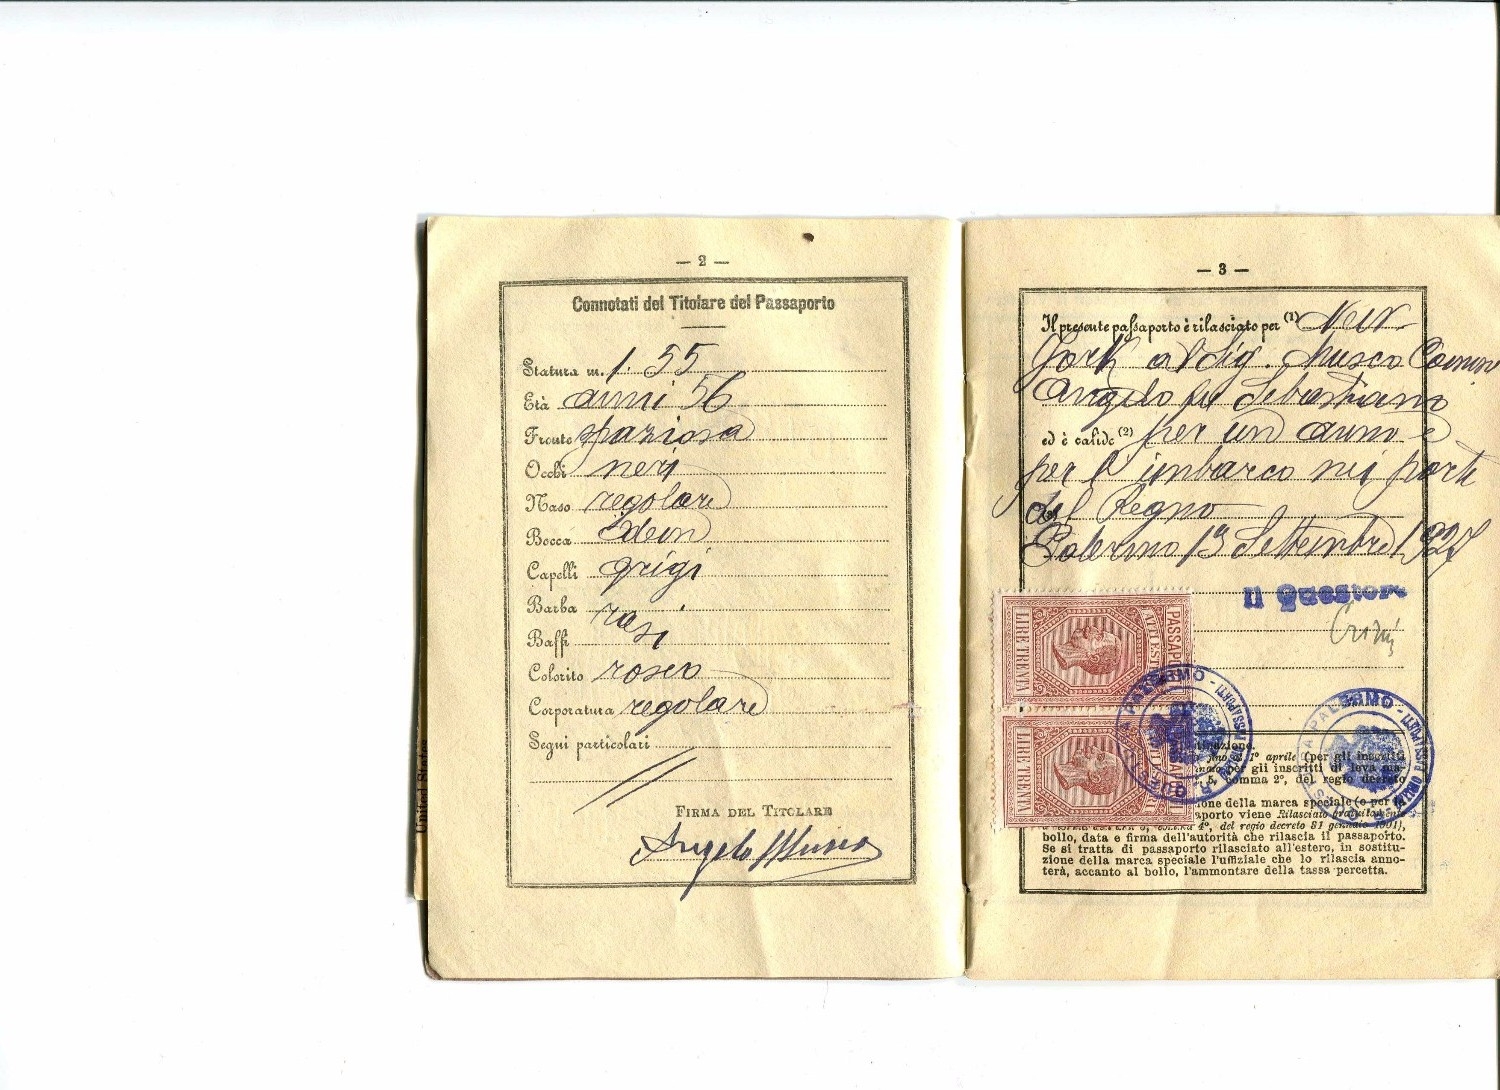 — 2 —
Connotati del Titolare del Passaporto
Statura m. 1.55
Età anni 56
Fronte spaziosa
Occhi neri
Naso regolare
Bocca idem
Capelli grigi
Barba
rasi
Baffi
Colorito roseo
Corporatura regolare
Segni particolari //
FIRMA DEL TITOLARE
Angelo Musco
United States
— 3 —
Il presente passaporto è rilasciato per (1) New
York al Sig. Musco Comm
Angelo fu Sebastiano
ed è valido (2) per un anno e
per l'imbarco nei porti
del Regno
Palermo 13 Settembre 1927
Il Questore
PASSAPORTI
ALL'ESTERO
LIRE TRENTA
LIRE TRENTA
PALERMO
PALERMO
tinazione.
fino al 1° aprile (per gli inscritti
per gli inscritti di leva ma-
5, comma 2°, del regio decreto
ione della marca speciale (o per la
aporto viene Rilasciato gratuitamente
4°, del regio decreto 31 gennaio 1901),
bollo, data e firma dell'autorità che rilascia il passaporto.
Se si tratta di passaporto rilasciato all'estero, in sostitu-
zione della marca speciale l'uffiziale che lo rilascia anno-
terà, accanto al bollo, l'ammontare della tassa percetta.